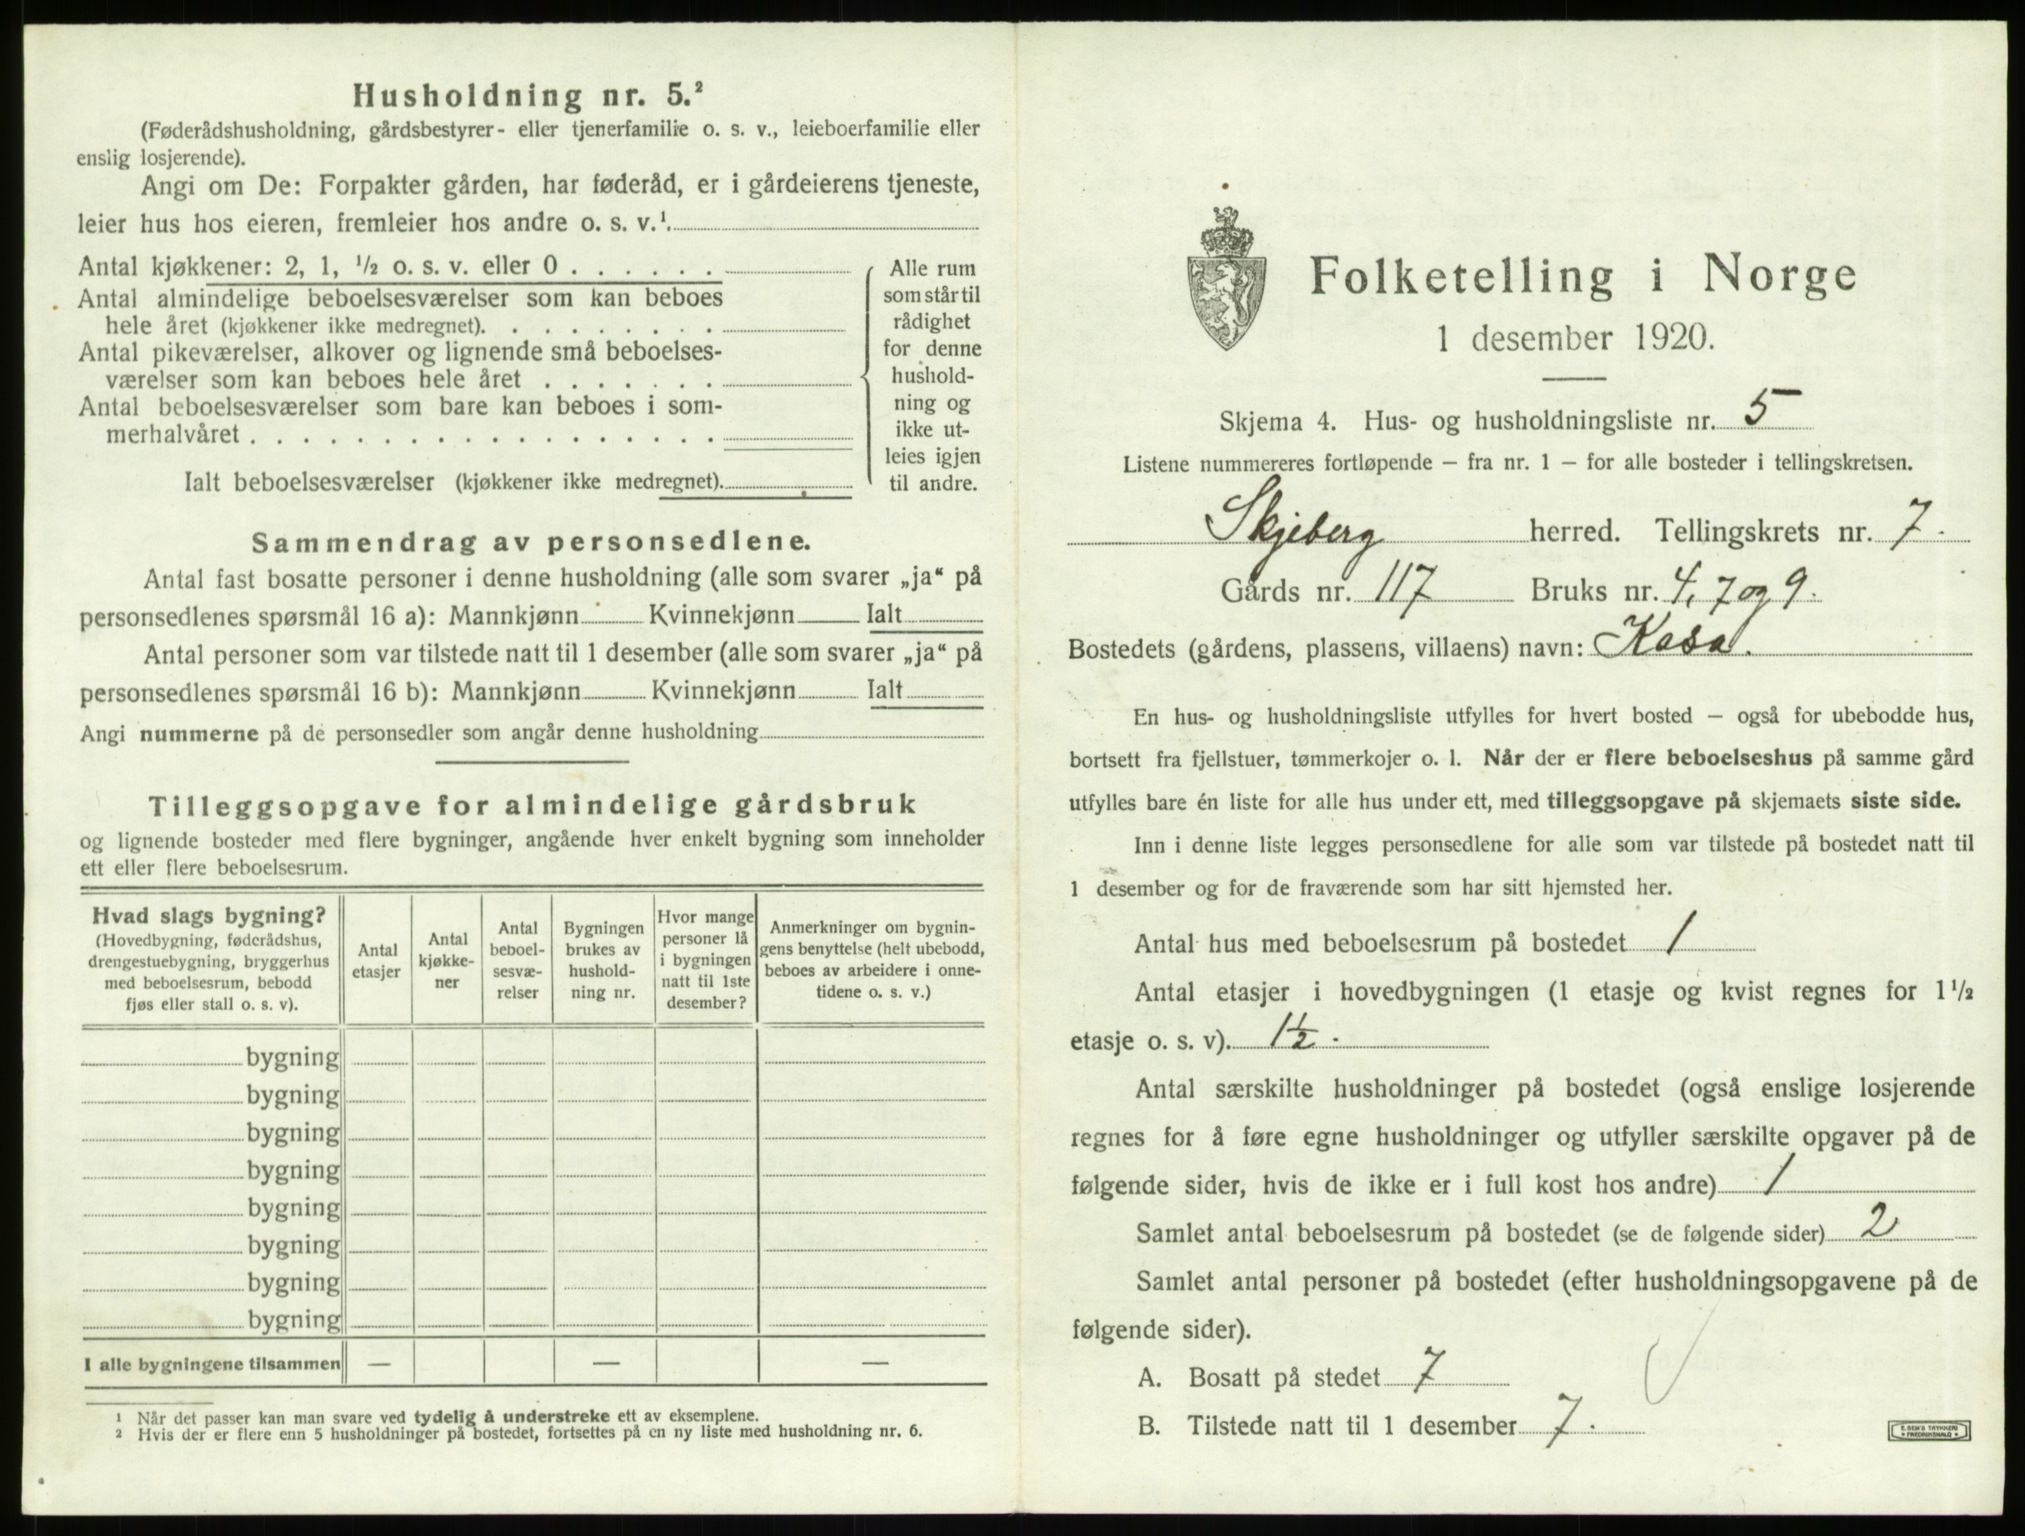 Husholdning nr. 5.²
(Føderådshusholdning, gårdsbestyrer- eller tjenerfamilie o. s. v., leieboerfamilie eller
enslig losjerende).
Angi om De: Forpakter gården, har føderåd, er i gårdeierens tjeneste,
leier hus hos eieren, fremleier hos andre o. s. v.¹.
Antal kjøkkener: 2, 1, ½ o. s. v. eller 0 . . . . . .
Antal almindelige beboelsesværelser som kan beboes
hele året (kjøkkener ikke medregnet). . . . . . . . .
Antal pikeværelser, alkover og lignende små beboelses-
værelser som kan beboes hele året . . . . . . .
Antal beboelsesværelser som bare kan beboes i som-
merhalvåret . . . . . . . . . . . . . . . . . .
Ialt beboelsesværelser (kjøkkener ikke medregnet).
Alle rum
som står til
rådighet
for denne
hushold-
ning og
ikke ut-
leies igjen
til andre.
Sammendrag av personsedlene.
Antal fast bosatte personer i denne husholdning (alle som svarer „ja“ på
personsedlenes spørsmål 16 a): Mannkjønn Kvinnekjønn Ialt
Antal personer som var tilstede natt til 1 desember (alle som svarer „ja“ på
personsedlenes spørsmål 16 b): Mannkjønn Kvinnekjønn Ialt
Angi nummerne på de personsedler som angår denne husholdning
Tilleggsopgave for almindelige gårdsbruk
og lignende bosteder med flere bygninger, angående hver enkelt bygning som inneholder
ett eller flere beboelsesrum.
Hvad slags bygning?
(Hovedbygning, føderådshus,
drengestuebygning, bryggerhus
med beboelsesrum, bebodd
fjøs eller stall o. s. v).
Antal
etasjer
Antal
kjøkke-
ner
Antal
beboel-
sesvæ-
relser
Bygningen
brukes av
hushold-
ning nr.
Hvor mange
personer lå
i bygningen
natt til 1ste
desember?
Anmerkninger om bygnin-
gens benyttelse (helt ubebodd,
beboes av arbeidere i onne-
tidene o. s. v.)
bygning
bygning
bygning
bygning
bygning
bygning
bygning
bygning
I alle bygningene tilsammen — — —
¹ Når det passer kan man svare ved tydelig å understreke ett av eksemplene.
² Hvis der er flere enn 5 husholdninger på bostedet, fortsettes på en ny liste med husholdning nr. 6.
Folketelling i Norge
1 desember 1920.
Skjema 4. Hus- og husholdningsliste nr. 5
Listene nummereres fortløpende – fra nr. 1 – for alle bosteder i tellingskretsen.
Skjeberg herred. Tellingskrets nr. 7.
Gårds nr. 117 Bruks nr. 4, 7 og 9.
Bostedets (gårdens, plassens, villaens) navn: Kasa.
En hus- og husholdningsliste utfylles for hvert bosted – også for ubebodde hus,
bortsett fra fjellstuer, tømmerkojer o. l. Når der er flere beboelseshus på samme gård
utfylles bare én liste for alle hus under ett, med tilleggsopgave på skjemaets siste side.
Inn i denne liste legges personsedlene for alle som var tilstede på bostedet natt til
1 desember og for de fraværende som har sitt hjemsted her.
Antal hus med beboelsesrum på bostedet 1
Antal etasjer i hovedbygningen (1 etasje og kvist regnes for 1½
etasje o. s. v). 1½.
Antal særskilte husholdninger på bostedet (også enslige losjerende
regnes for å føre egne husholdninger og utfyller særskilte opgaver på de
følgende sider, hvis de ikke er i full kost hos andre) 1
Samlet antal beboelsesrum på bostedet (se de følgende sider) 2
Samlet antal personer på bostedet (efter husholdningsopgavene på de
følgende sider).
A. Bosatt på stedet 7
B. Tilstede natt til 1 desember 7.